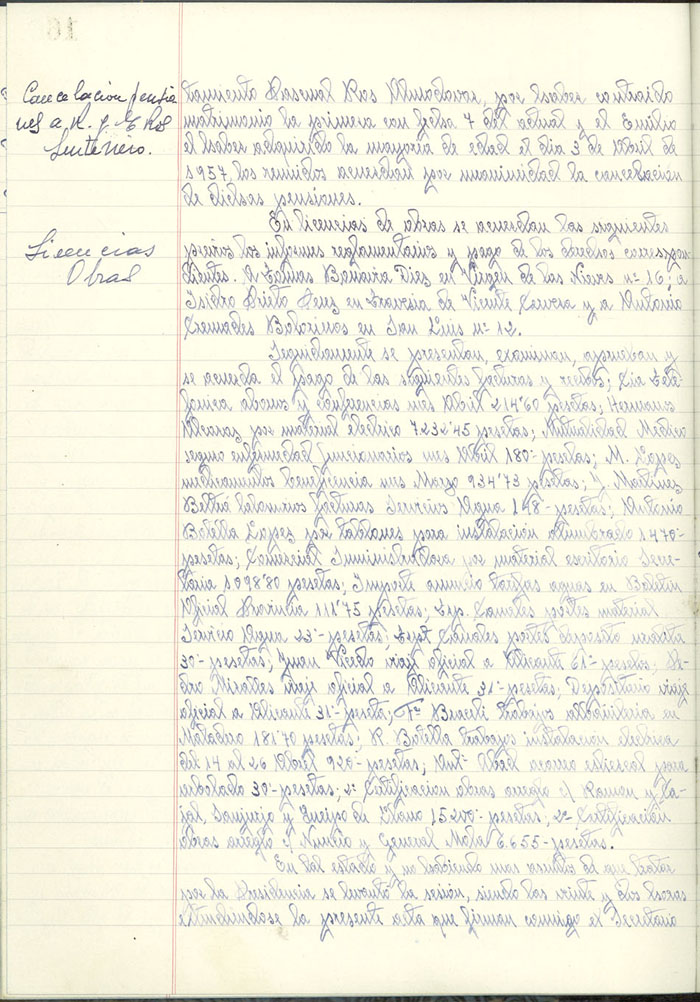 16
Cancelacion pensio
nes a R. y E. Ros
Senteniero.
tamiento Pascual Ros Almodovar, por haber contraido
matrimonio la primera con fecha 7 del actual y el Emilio
el haber adquirido la mayoria de edad el dia 3 de Abril de
1957, los reunidos acuerdan por unanimidad la cancelación
de dichas pensiones.
Licencias
Obras
En licencias de obras se acuerdan las siguientes
previos los informes reglamentarios y pago de los derechos correspon
dientes. A Tomas Diez en Virgen de las Nieves nº 16; a
Isidro Prieto Perez en Travesia de Vicente Cervera y a Antonio
Cremades en San Luis nº 12.
Seguidamente se presentan, examinan, aprueban y
se acuerda el pago de las siguientes facturas y recibos; Cia Tele
fonica abonos y conferencias mes Abril 214'60 pesetas; Hermanos
por material electrico 7232'45 pesetas; Mutualidad Medico
seguro enfermedad funcionarios mes Abril 180- pesetas; M. Lopez
medicamentos beneficencia mes Marzo 934'73 pesetas; J. Martinez
Beltrá facturas Servicios Agua 148- pesetas; Antonio
Botella Lopez por tablones para instalación Alumbrado 1470-
pesetas; Comercial Suministradora por material escritorio Secre-
taria 1098'80 pesetas; Importe anuncio tarifas aguas en Boletin
Oficial Provincia 111'75 pesetas; Exp. Canales portes material
Servicio Agua 23- pesetas; Expt Canales portes deposito
30- pesetas; Juan Vicedo viaje oficial a Alicante 61- pesetas; Pe-
dro Miralles viaje oficial a Alicante 31- pesetas; Depositario viaje
oficial a Alicante 31- peseta; Fº trabajos albañileria en
Matadero 181'70 pesetas; R. Botella trabajos instalacion electrica
del 14 al 26 Abril 920- pesetas; Antº Abad acarreo estiercol para
arbolado 30- pesetas; 2ª Certificacion obras arreglo c/ Ramon y Ca-
jal, Sanjurjo y Queipo de Llano 15200- pesetas; 2ª Certificación
obras arreglo c/ Nuncio y General Mola 6.655- pesetas.
En tal estado y no habiendo mas asuntos de que tratar
por la Presidencia se levantó la sesión, siendo las veinte y dos horas
extendiendose la presente acta que firman conmigo el Secretario